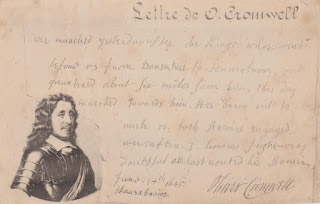 Lettre de O. Cromwell
wee marched yesterday after the Kinge who went
before us from Daventree to
quartered about six miles from him, this day
marched towards him. Hee drew out to
meete us, both Armies engaged,
wee after 3 howers
at last routed his Armie
June 14th 1645
Oliver Cromwell